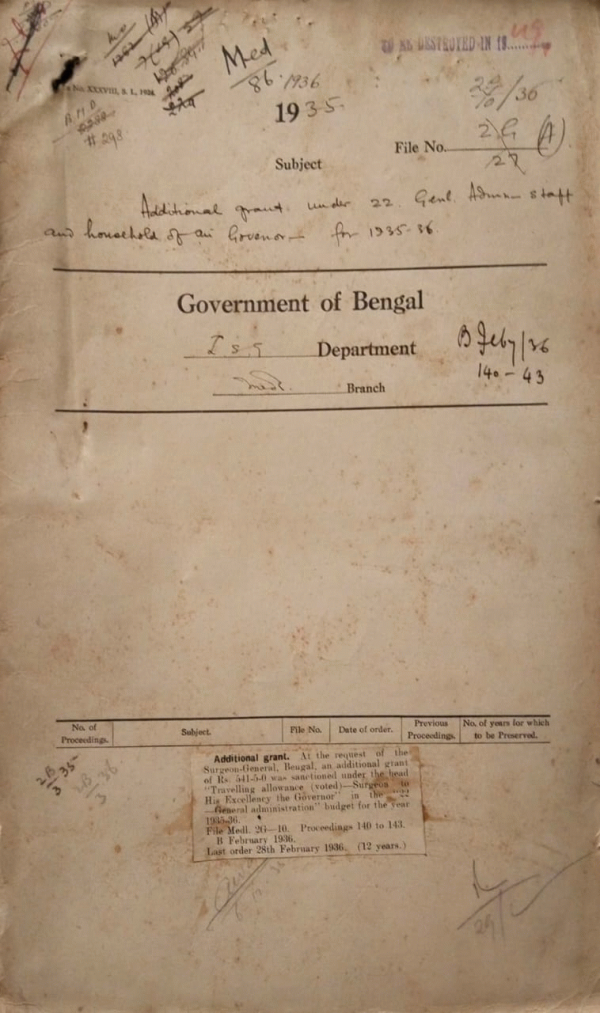 Med
86. 1936
TO BE DESTROYED IN 19
No. XXXVIII, S. I.,
1935
22/10/36
# 298
File No. 2G (A)
27
Subject
Additional grant under 22. Genl. Admn. staff
and household of Governor for 1935-36.
Government of Bengal
Department
Branch
B Feby/36
140-43
No. of Proceedings.
Subject.
File No.
Date of order.
Previous Proceedings.
No. of years for which to be Preserved.
2B/3 35
2B/3 36
Additional grant. At the request of the
Surgeon-General, Bengal, an additional grant
of Rs. 541-5-0 was sanctioned under the head
"Travelling allowance (voted)—Surgeon to
His Excellency the Governor" in the "22
General administration" budget for the year
1935-36.
File Medl. 2G—10. Proceedings 140 to 143.
B February 1936.
Last order 28th February 1936. (12 years.)